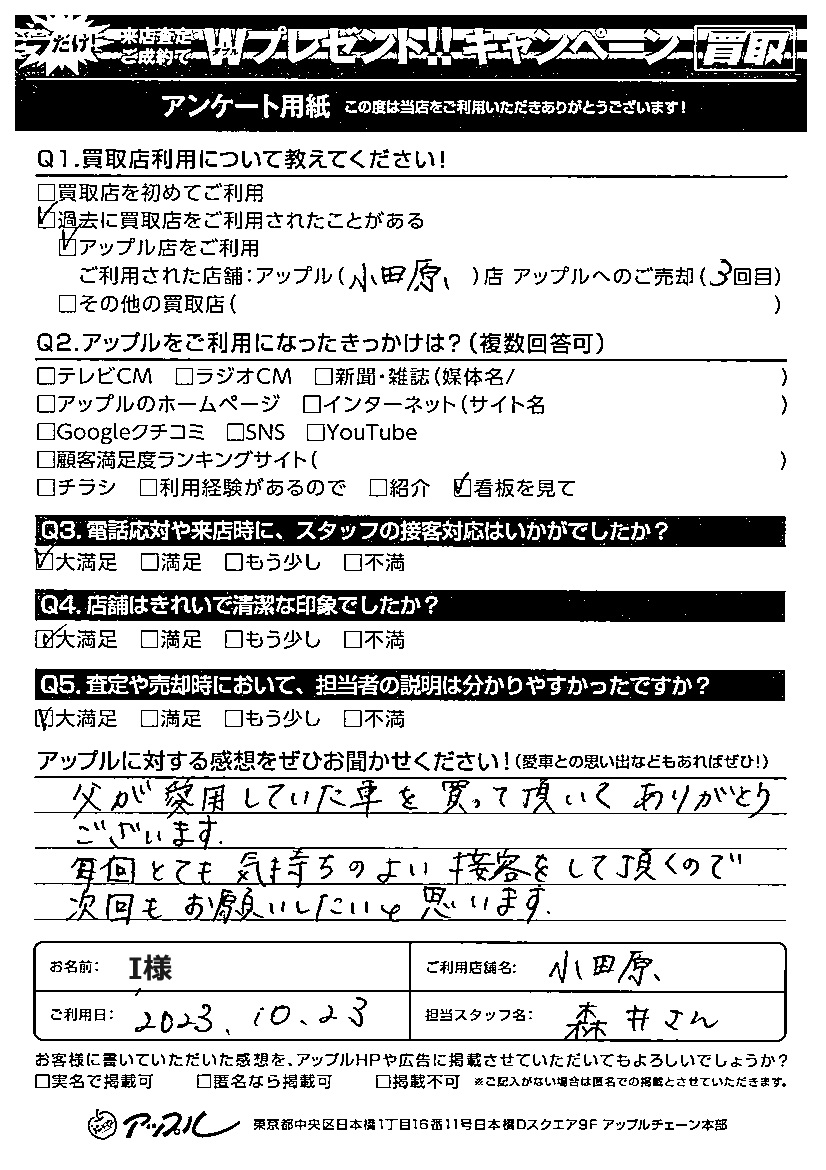 だけ! 来店査定ご成約で Wダブルプレゼント!! キャンペーン 買取
アンケート用紙 この度は当店をご利用いただきありがとうございます!
Q1.買取店利用について教えてください!
□買取店を初めてご利用
☑過去に買取店をご利用されたことがある
☑アップル店をご利用
ご利用された店舗:アップル(小田原、)店 アップルへのご売却(3回目)
□その他の買取店( )
Q2.アップルをご利用になったきっかけは?(複数回答可)
□テレビCM □ラジオCM □新聞・雑誌(媒体名/ )
□アップルのホームページ □インターネット(サイト名 )
□Googleクチコミ □SNS □YouTube
□顧客満足度ランキングサイト( )
□チラシ □利用経験があるので □紹介 ☑看板を見て
Q3.電話応対や来店時に、スタッフの接客対応はいかがでしたか?
☑大満足 □満足 □もう少し □不満
Q4.店舗はきれいで清潔な印象でしたか?
☑大満足 □満足 □もう少し □不満
Q5.査定や売却時において、担当者の説明は分かりやすかったですか?
☑大満足 □満足 □もう少し □不満
アップルに対する感想をぜひお聞かせください!(愛車との思い出などもあればぜひ!)
父が愛用していた車を買って頂いて ありがとう
ございます.
毎回とても気持ちのよい接客をして頂くので
次回もお願いしたいと思います.
お名前: I様 ご利用店舗名: 小田原、
ご利用日: 2023.10.23 担当スタッフ名: 森井さん
お客様に書いていただいた感想を、アップルHPや広告に掲載させていただいてもよろしいでしょうか?
□実名で掲載可 □匿名なら掲載可 □掲載不可 ※ご記入がない場合は匿名での掲載とさせていただきます。
アップル 東京都中央区日本橋1丁目16番11号日本橋Dスクエア9F アップルチェーン本部